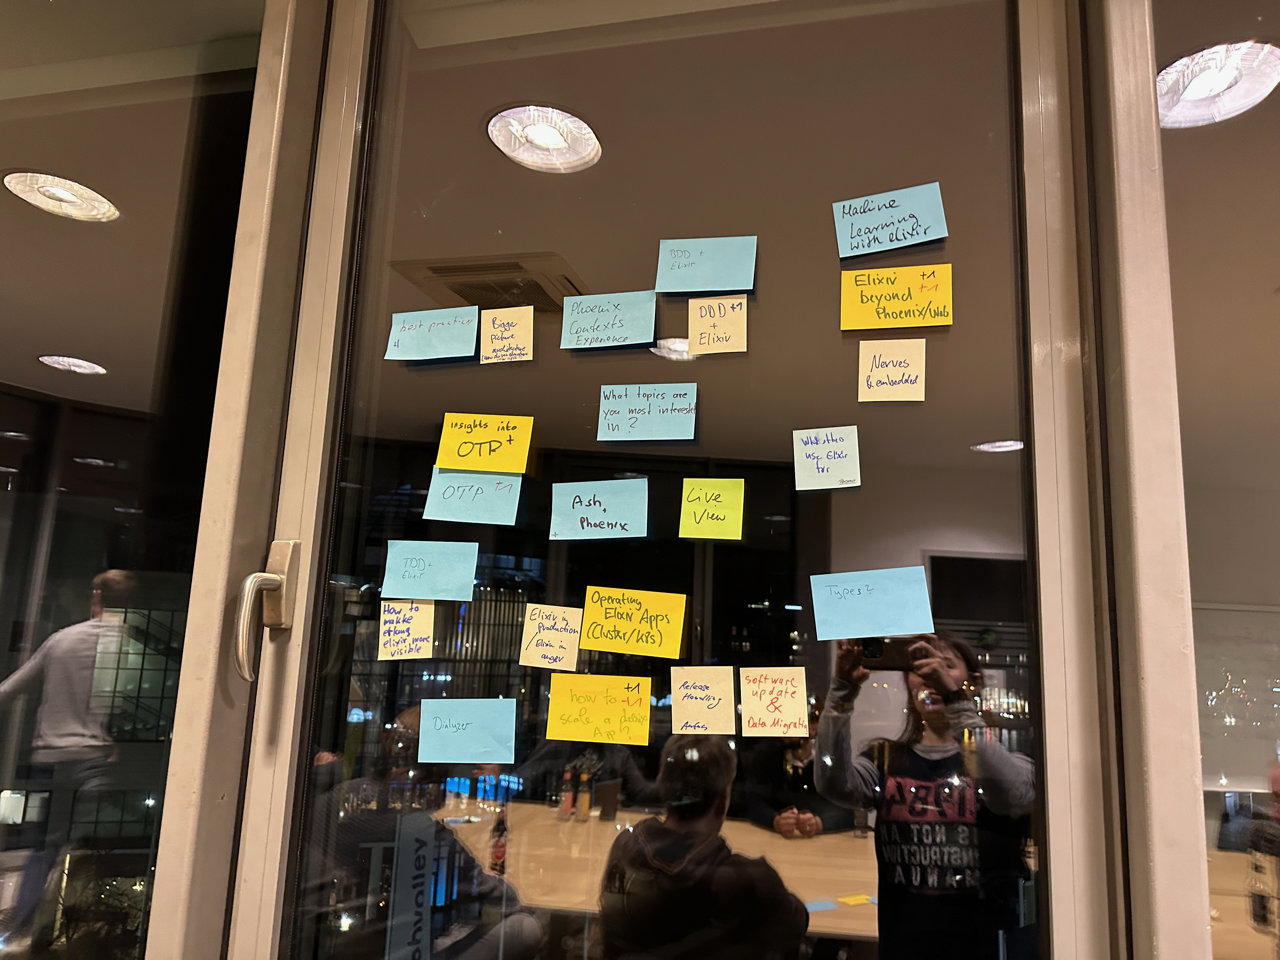 Machine
Learning
with elixir
BDD +
Elixir
Elixir +1
beyond +1
Phoenix/Web
best practices
Bigger
picture
architecture
Phoenix
Contexts
Experience
DDD +1
+
Elixir
Nerves
& embedded
What topics are
you most interested
in ?
Insights into
OTP +
OTP +1
Ash
+
Phoenix
+
Live
View
use Elixir
for
TDD +
Elixir
How to
make
strong
elixir more
visible
Elixir in
production
/ Elixir in
anger
Operating
Elixir Apps
(Cluster/K8s)
Types?
Dialyzer
how to +1
scale a phoenix +1
App?
Release
Handling
software
update
&
Data Migration
IS NOT AN
INSTRUCTION
MANUAL